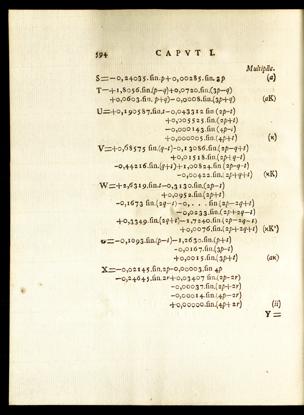 594 CAPUT I.
Multiplic.
S=-0,24035.sin.p+0,00285.sin.3p (a)
T-+1,8056.sin.(p-q)+0,0720.sin.(3p-q)
+0,0603.sin.(p+q)-0,0008.sin.(3p+q) (aK)
U=+0,190587.sin.t-0,043312 sin (2p-t)
+0,005525.sin.(2p+t)
-0,000143.sin (4p-t)
+0,000005.sin.(4p+t) (κ)
V=+0,68575 sin.(q-t)-0,13086.sin.(2p-q+t)
+0,01518.sin.(2p+q-t)
-0,44216.sin.(q+t)+1,00824.sin (2p-q-t)
-0,00422.sin.(2p+q+t) (κK)
W=+2,6319.sin.t-0,3130.sin.(2p-t)
+0,0952.sin(2p+t)
-0,1673 sin.(2q-t)-0,... sin (2p-2q+t)
-0,0233.sin.(2p+2q-t)
+0,3349.sin(2q+t)-1,7240.sin (2p-2q-t)
+0,0076.sin.(2p+2q+t) (κK²)
=-0,1093.sin.(p-t)-1,2630.sin.(p+t)
-0,0167.sin.(3p-t)
+0,0015.sin.(3p+t) (aκ)
X=-0,02145.sin 2p-0,00003.sin 4p
-0,24645.sin.2r+0,03407 sin.(2p-2r)
-0,00037.sin.(2p+2r)
-0,00014.sin (4p-2r)
+0,00000.sin.(4p+2r) (ii)
Y=